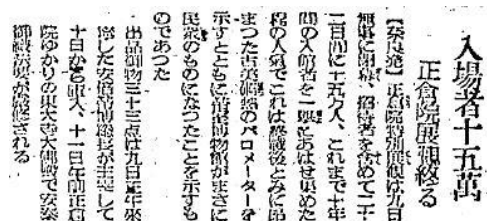 入場者十五萬
正倉院展観終る
【奈良発】正倉院特別展観は九日
無事に閉幕、招待者を含めて二十
二日間に十五万人、これまで十年
間の入館者を一度にあはせ集めた
程の人氣でこれは終戰後とみに昂
まつた古美術熱のバロメーターを
示すとともに帝室博物館がまさに
民衆のものになつたことを示すも
のであつた
出品御物三十三点は九日正午來
した安倍博物館長が主宰して
十日から東大、十一日午前正倉
院ゆかりの東大寺大佛殿で安泰
御礼法要が厳修される